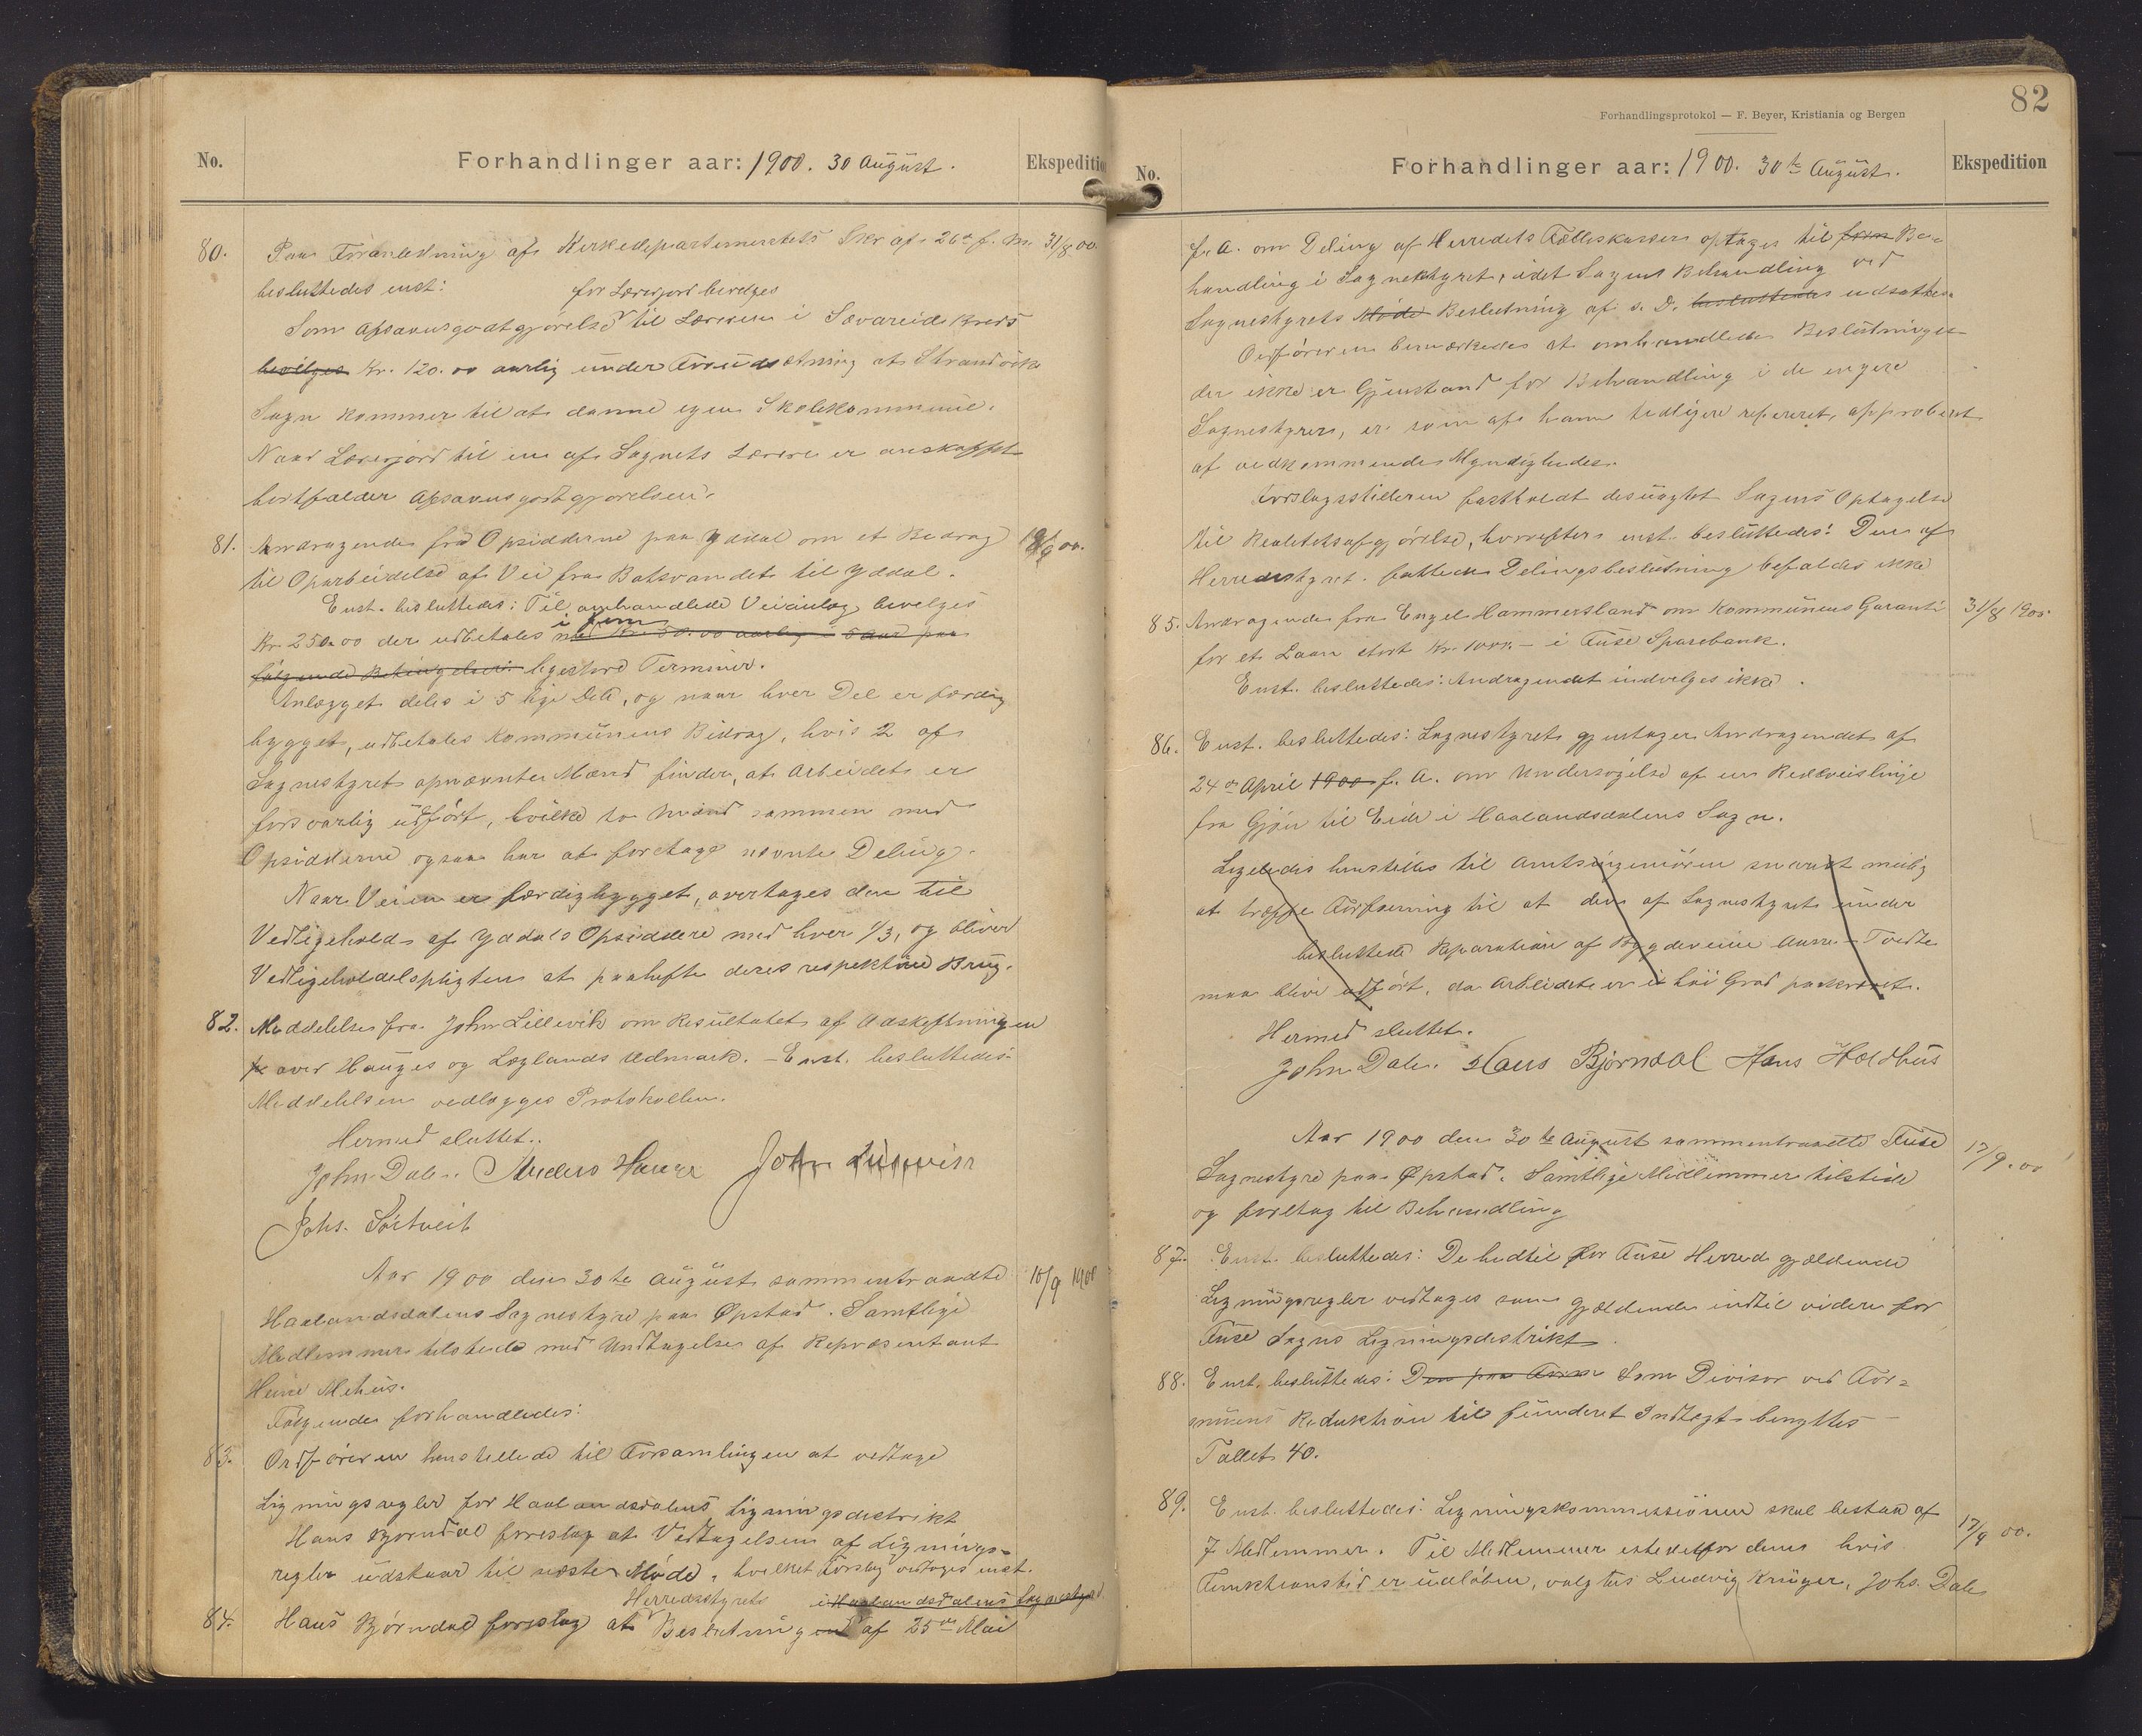 No.
Forhandlinger aar: 1900. 30 August.
Ekspedition
80. Paa Foranledning af Kirkedepartementets Skr af 26de f. M. 31/8 00.
besluttedes enst:
for Lærerjord bevilges
Som Afsavnsgodtgjørelse til Læreren i Sævareid Kreds
bevilges Kr. 120.00 aarlig under Forudsætning at Strandviks
Sogn kommer til at danne egen Skolekommune.
Naar Lærerjord til en af Sognets Lærere er anskaffet
bortfalder Afsavnsgodtgjørelsen.
81. Andragende fra Opsidderne paa Yddal om et Bidrag 18/9 00.
til Oparbeidelse af Vei fra Botsvandet til Yddal.
Enst. besluttedes: Til omhandlede Veianlæg bevilges
i fem
Kr. 250.00 der udbetales med Kr. 50.00 aarlig i 5 Aar paa
følgende Betingelser: ligestore Terminer.
Anlægget deles i 5 lige Dele, og naar hver Del er færdig
bygget, udbetales Kommunens Bidrag, hvis 2 af
Sognestyret opnævnte Mænd finder, at Arbeidet er
forsvarlig udført, hvilke to Mænd sammen med
Opsidderne ogsaa har at foretage nævnte Deling.
Naar Veien er færdigbygget, overtages den til
Vedligehold af Yddals Opsiddere med hver 1/3, og bliver
Vedligeholdelsespligten at paahefte deres respektive Brug.
82. Meddelelse fra John Lillevik om Resultatet af Udskiftningen
over Hauges og Loglands Udmark. - Enst. besluttedes:
Meddelelsen vedlægges Protokollen.
Hermed sluttet.
John Dale. Anders Hauge John Lillevik
Johs. Sørtveit
Aar 1900 den 30te August sammentraadte 10/9 1900
Haalandsdalens Sognestyre paa Øpstad. Samtlige
Medlemmer tilstede med Undtagelse af Repræsentant
Heine Mehus.
Følgende forhandledes:
83. Ordføreren henstillede til Forsamlingen at vedtage
Ligningsregler for Haalandsdalens Ligningsdistrikt
Hans Bjørndal foreslog at Vedtagelsen af Lignings-
regler udstaar til næste Møde, hvilket Forslag vedtoges enst.
Herredsstyrets i Haalandsdalens Sognestyre
84. Hans Bjørndal foreslog at Beslutningen af 25de Mai
82
Forhandlingsprotokol — F. Beyer, Kristiania og Bergen
No.
Forhandlinger aar: 1900. 30te August.
Ekspedition
f. A. om Deling af Herredets Fælleskasser optages til forn Be-
handling i Sognestyret, idet Sagens Behandling ved
Sognestyrets Møde Beslutning af s. D. besluttedes udsattes.
Ordføreren bemærkede at omhandlede Beslutninger
der ikke er Gjenstand for Behandling i de engere
Sognestyrer, er som af ham tidligere refereret, approberet
af vedkommende Myndigheder.
Forslagsstilleren fastholdt desuagtet Sagens Optagelse
til Realitetsafgjørelse, hvorefter enst. besluttedes: Den af
Herredsstyret fattede Delingsbeslutning befaldes ikke
85. Andragende fra Engel Hammersland om Kommunens Garanti 31/8 1900.
for et Laan stort Kr. 1000,- i Fuse Sparebank.
Enst. besluttedes: Andragendet indvilges ikke.
86. Enst. besluttedes: Sognestyret gjentager Andragendet af
24de April 1900 f. A. om Undersøgelse af en Rodeveislinje
fra Gjøn til Eide i Haalandsdalens Sogn.
Ligeledes henstilles til Amtsingeniøren snarest mulig
at træffe Anføining til at den af Sognestyret under
besluttede Reparation af Bygdeveien Aarre - Tvedte
maa blive udført, da Arbeidet er i høi Grad paakrævet.
Hermed sluttet.
John Dale. Hans Bjørndal Hans Holdhus
Aar 1900 den 30te August sammentraadte Fuse 17/9. 00
Sognestyre paa Øpstad. Samtlige Medlemmer tilstede
og foretog til Behandling
87. Enst. besluttedes: De hidtil for Fuse Herred gjældende
Ligningsregler vedtages som gjældende indtil videre for
Fuse Sogns Ligningsdistrikt.
88. Enst. besluttedes: Den paa Som Divisor ved For-
muens Reduktion til funderet Indtægt benyttes
Tallet 40.
89. Enst. besluttedes: Ligningskommissionen skal bestaa af
7 Medlemmer. Til Medlemmer istedetfor dem, hvis 17/9 00.
Funktionstid er udløben, valgtes Ludvig Krüger, Johs. Dale